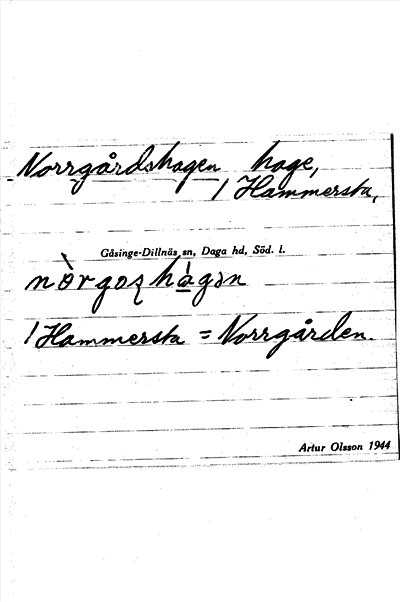 Norrgårdshagen hage,
1 Hammersta,
Gåsinge-Dillnäs sn, Daga hd, Söd. l.
1 Hammersta = Norrgården.
Artur Olsson 1944